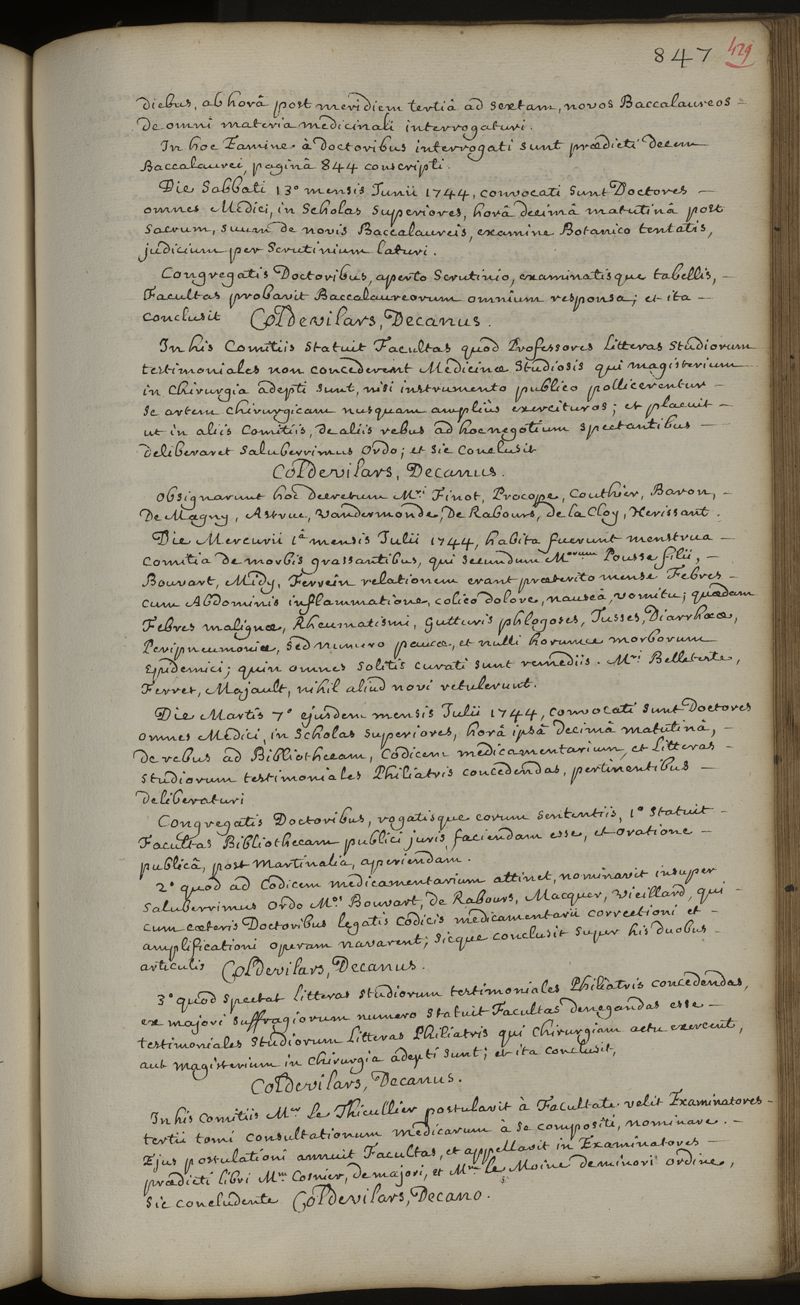 847 429
diebus, ab horâ post meridiem tertiâ ad sextam, novos Baccalaureos -
de omni materia medicinali interrogaturi.
In hoc Examine à doctoribus interrogati sunt prædicti decem
Baccalaurei, paginâ 844 conscripti.
Die Sabbati 13° mensis Junii 1744, convocati sunt Doctores -
omnes Medici, in Scholas superiores, horâ decimâ matutinâ post
Sacrum, suum de novis Baccalaureis, examine Botanico tentatis,
judicium per Scrutinium laturi.
Congregatis Doctoribus, aperto Scrutinio, examinatisque tabellis, -
Facultas probavit Baccalaureorum omnium responsa; et ita -
conclusit Col De vilars, Decanus.
In his Comitiis statuit Facultas quod Professores Litteras studiorum
testimoniales non concederent Medicinæ studiosis qui magisterium
in Chirurgia adepti sunt, nisi instrumento publico pollicerentur -
se artem chirurgicam nusquam ampliùs exercituros; et placuit -
ut in aliis Comitiis, de aliis rebus ad hoc negotium spectantibus -
deliberaret saluberrimus Ordo; et sic conclusit
Col De vilars, Decanus.
Obsignarunt hoc decretum Mri Finot, Procope, Couthier, Baron, -
De Magny, Astruc, Vandermonde, De Rabours, de la Cloy, Herissant.
Die Mercurii 1â mensis Julii 1744, habita fuerunt menstrua -
Comitia de morbis grassantibus, qui secundum Morum Pousse filii, -
Bouvart, Midy, Ferrein relationem erant præterito mense Febres -
cum Abdominis inflammatione, colico dolore, nauseâ vomitu; quædam
Febres malignæ, Rheumatismi, gutturis phlogoses, Tusses, Diarrhææ,
Peripneumoniæ, sed numero paucæ, et nulli horumce morborum
Epidemici; quin omnes solitis curati sunt remediis. Mri Belleteste,
Ferret, Majault, nihil aliud novi retulerunt.
Die Martis 7° ejusdem mensis Julii 1744, convocati sunt Doctores
omnes Medici, in Scholas superiores, horâ ipsâ decimâ matutinâ, -
de rebus ad Bibliothecam, Codicem medicamentarium, et Litteras -
studiorum testimoniales Philiatris concedendas, pertinentibus -
deliberaturi
Congregatis Doctoribus, rogatisque eorum sententiis, 1° statuit -
Facultas Bibliothecam publici juris faciendam esse, et oratione -
publicâ, post Martinalia, aperiendam.
2° quod ad Codicem medicamentarium attinet, nominavit insuper
Saluberrimus Ordo Mos Bouvart, de Rabours, Macquer, Vieillard, qui -
cum cæteris Doctoribus legatis Codicis medicamentarii correctioni et -
amplificationi operam navarent; sicque conclusit super his duobus -
articulis Col De vilars, Decanus.
3° quod spectat Litteras studiorum testimoniales Philiatris concedendas,
ex majori suffragiorum numero statuit Facultas denegandas esse -
testimoniales studiorum Litteras Philiatris qui Chirurgiam actu exercent,
aut magisterium in Chirurgia adepti sunt; et ita conclusit,
Col De vilars, Decanus.
In his Comitiis Mer Le Thieullier postulavit à Facultate velit Examinatores -
tertii tomi consultationum medicarum à se compositi, nominare. -
Ejus postulationi annuit Facultas, et appellavit in Examinatores -
prædicti libri Mum Cosnier, de majori, et Mum le Moine de minori ordine,
sic concludente Col De vilars, Decano.